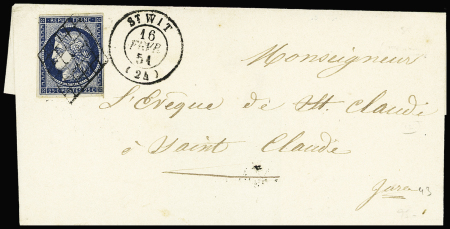 REPUB. FRANC.
25c POSTES 25c
ST WIT
16
FEVR.
51
(24)
Monseigneur
L'Evêque de St. Claude
à Saint Claude
Jura